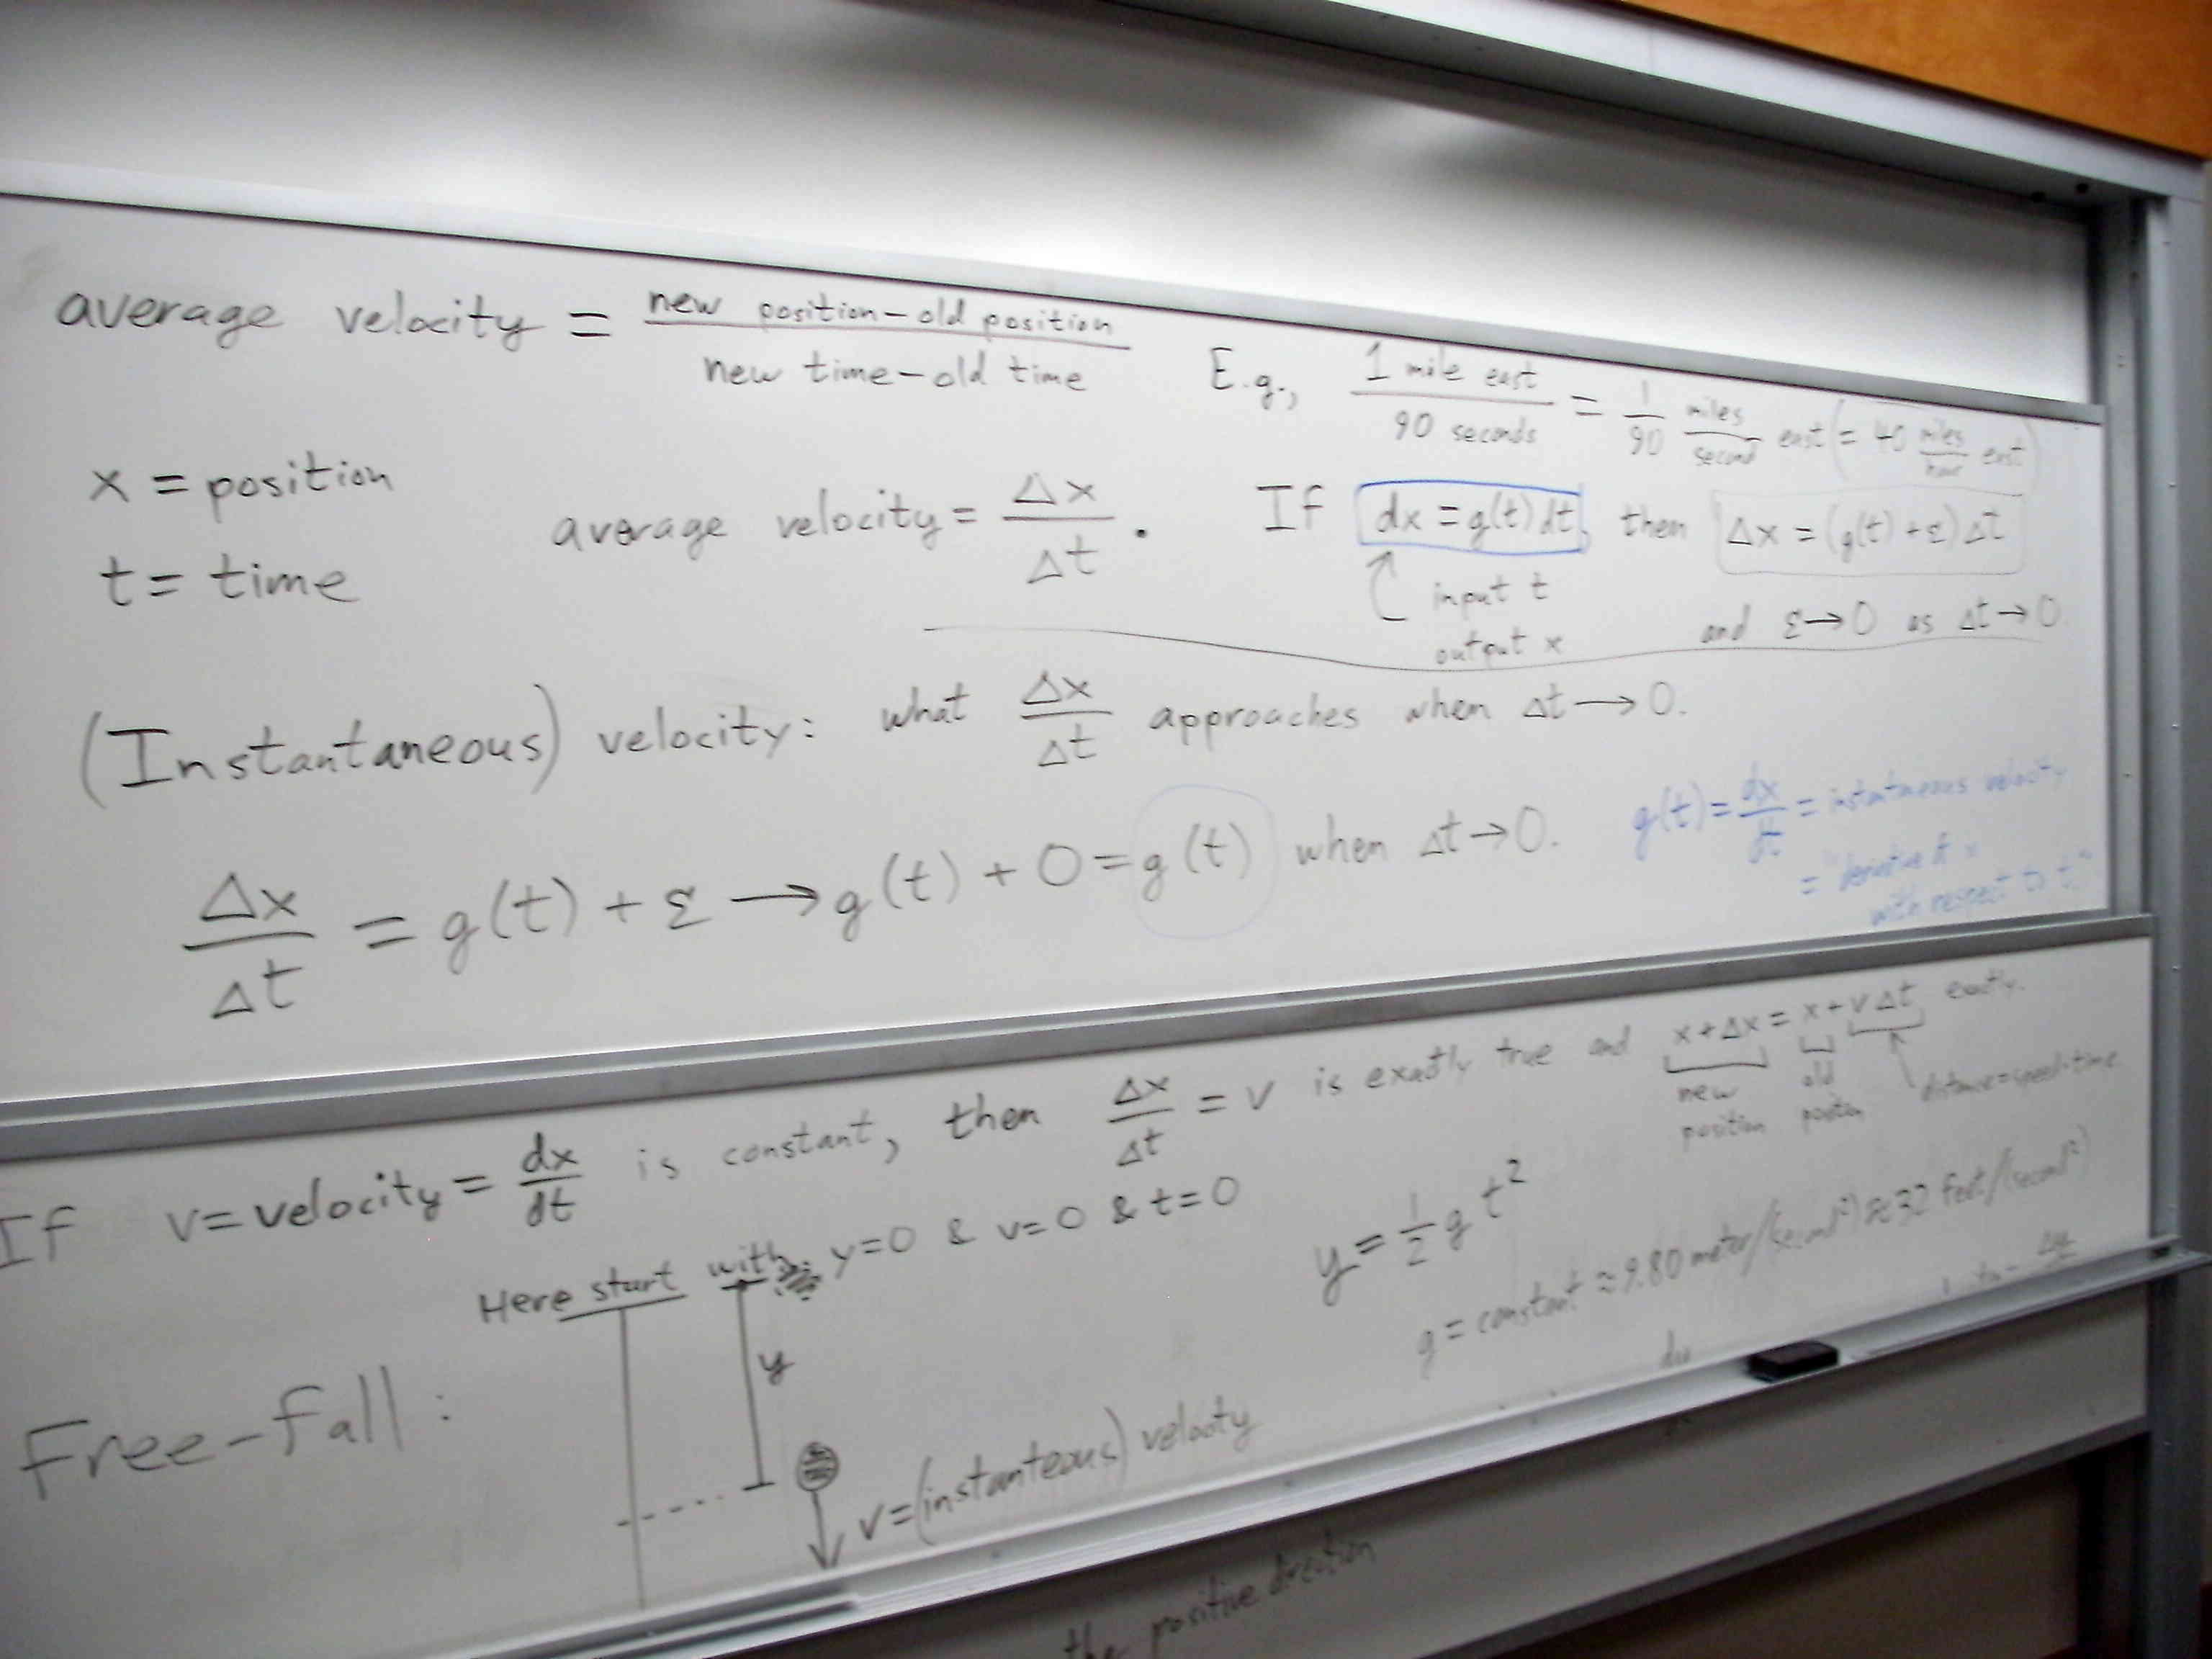 average velocity = new position – old position / new time – old time
E.g., 1 mile east / 90 seconds = 1/90 miles/second east (= 40 miles/hour east)
x = position
t = time
average velocity = Δx/Δt .
If dx = g(t) dt, then Δx = (g(t) + ε) Δt
input t
output x
and ε → 0 as Δt → 0
(Instantaneous) velocity: what Δx/Δt approaches when Δt → 0.
Δx/Δt = g(t) + ε → g(t) + 0 = g(t) when Δt → 0.
g(t) = dx/dt = instantaneous velocity
= "derivative of x
with respect to t."
If v = velocity = dx/dt is constant, then Δx/Δt = v is exactly true and x + Δx = x + v Δt exactly.
new position
old position
distance = speed · time
Here start with y = 0 & v = 0 & t = 0
y = 1/2 g t²
g = constant ≈ 9.80 meter/(second²) ≈ 32 feet/(second²)
Free-fall:
y
v = (instanteous) velocity
the positive direction